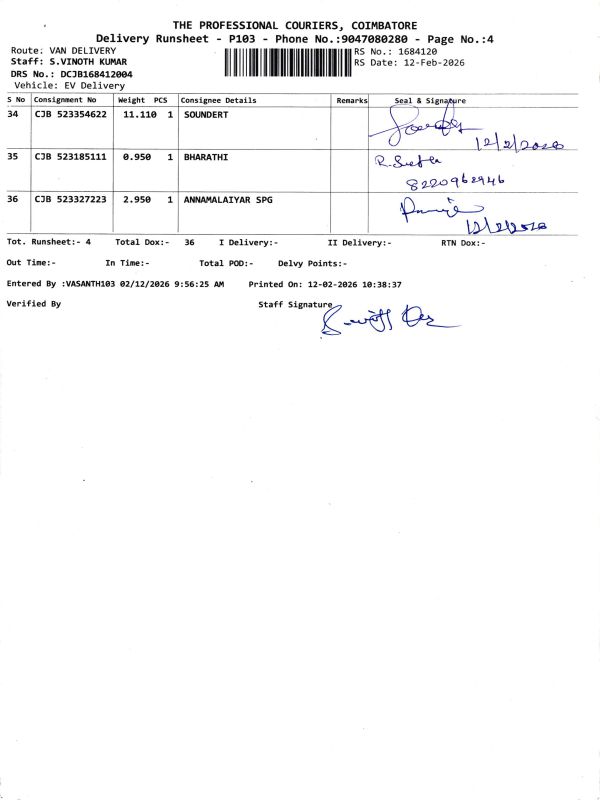 THE PROFESSIONAL COURIERS, COIMBATORE
Delivery Runsheet - P103 - Phone No.:9047080280 - Page No.:4
Route: VAN DELIVERY RS No.: 1684120
Staff: S.VINOTH KUMAR RS Date: 12-Feb-2026
DRS No.: DCJB168412004
Vehicle: EV Delivery
S No Consignment No Weight PCS Consignee Details Remarks Seal & Signature
34 CJB 523354622 11.110 1 SOUNDERT
12/2/2026
35 CJB 523185111 0.950 1 BHARATHI R.
8220962946
36 CJB 523327223 2.950 1 ANNAMALAIYAR SPG
12/2/2026
Tot. Runsheet:- 4 Total Dox:- 36 I Delivery:- II Delivery:- RTN Dox:-
Out Time:- In Time:- Total POD:- Delvy Points:-
Entered By :VASANTH103 02/12/2026 9:56:25 AM Printed On: 12-02-2026 10:38:37
Verified By Staff Signature